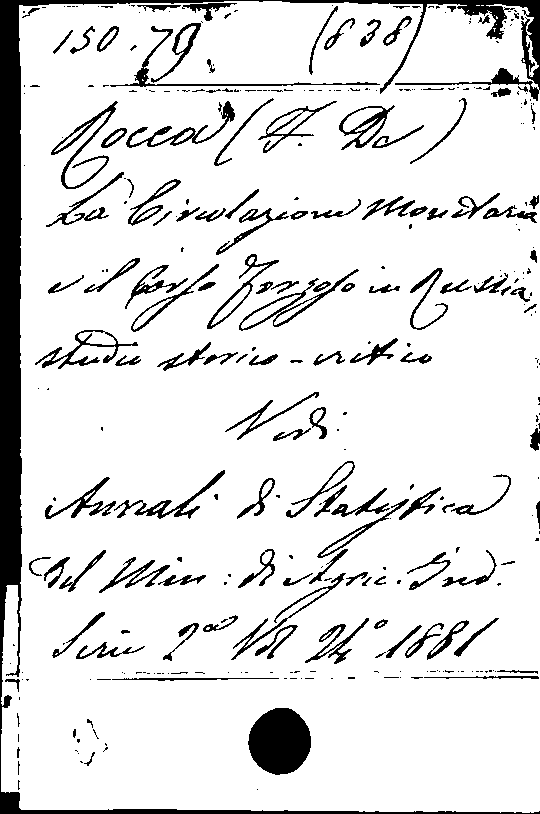 150.79 (838)
Rocca (F. De)
La Circolazione Monetaria
e il Corso Forzoso in Russia,
studio storico-critico
Vedi
Annali di Statistica
Del Min: di Agric. Ind.
Serie 2ª Vol 24° 1881